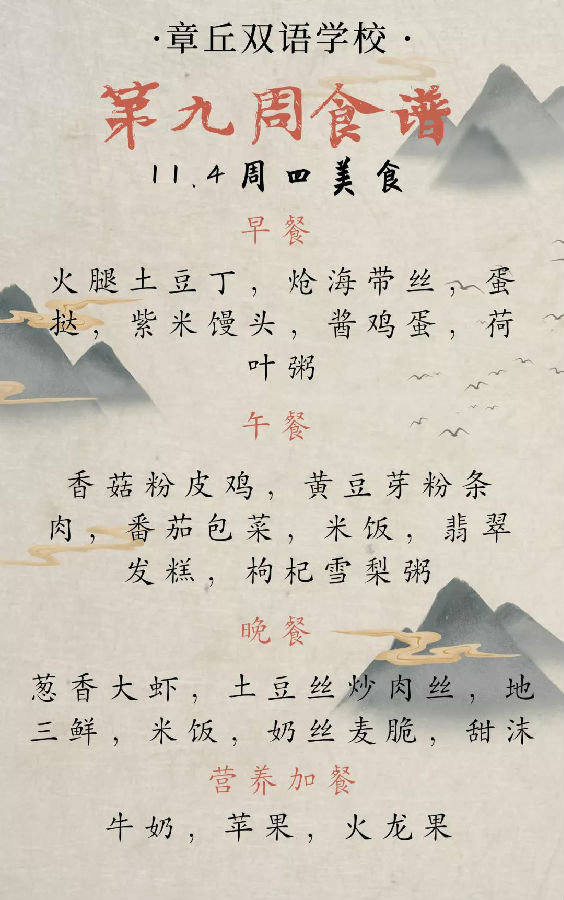 ·章丘双语学校·
第九周食谱
11.4周四美食
早餐
火腿土豆丁，炝海带丝，蛋
挞，紫米馒头，酱鸡蛋，荷
叶粥
午餐
香菇粉皮鸡，黄豆芽粉条
肉，番茄包菜，米饭，翡翠
发糕，枸杞雪梨粥
晚餐
葱香大虾，土豆丝炒肉丝，地
三鲜，米饭，奶丝麦脆，甜沫
营养加餐
牛奶，苹果，火龙果